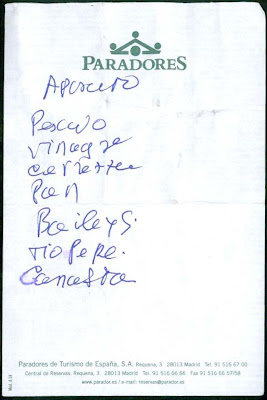 PARADORES
Pescado
vinagre
cerveza
Pan
Baileys.
Tio Pepe.
Canasta
Paradores de Turismo de España, S.A. Requena, 3 28013 Madrid Tel. 91 516 67 00
Central de Reservas. Requena, 3 28013 Madrid Tel. 91 516 66 66 Fax 91 516 66 57/58
www.parador.es / e-mail: reservas@parador.es